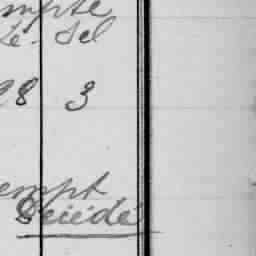 mpte
te. Sel
28 3
empt
Décédé